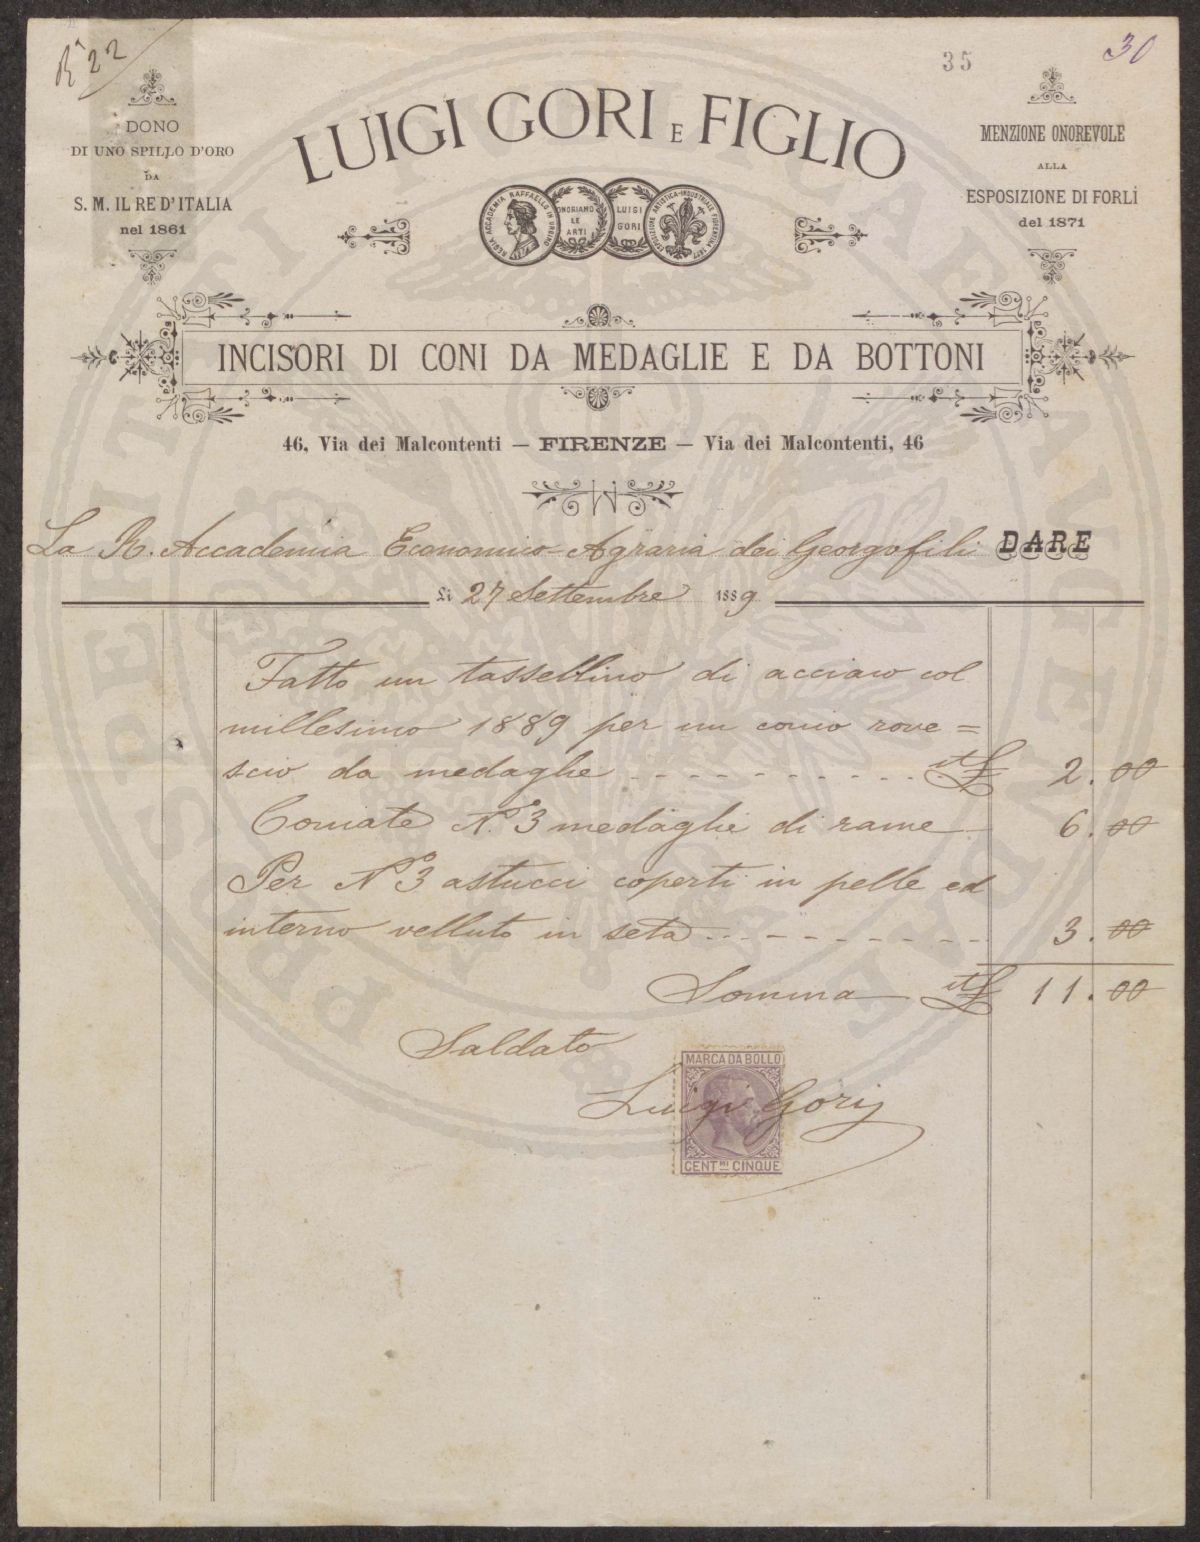 Rª 22
35
30
DONO
DI UNO SPILLO D'ORO
DA
S. M. IL RE D'ITALIA
nel 1861
LUIGI GORI E FIGLIO
MENZIONE ONOREVOLE
ALLA
ESPOSIZIONE DI FORLÌ
del 1871
REGIA ACCADEMIA RAFFAELLO IN URBINO
ONORIAMO
LE
ARTI
LUIGI
GORI
ESPOSIZIONE ARTISTICA-INDUSTRIALE FIORENTINA 1871
INCISORI DI CONI DA MEDAGLIE E DA BOTTONI
46, Via dei Malcontenti — FIRENZE — Via dei Malcontenti, 46
La R. Accademia Economico-Agraria dei Georgofili DARE
Li 27 Settembre 1889
Fatto un tassellino di acciaio col
millesimo 1889 per un conio rove=
scio da medaglie - - - - - - - - - - it £ 2.00
Coniate N.º 3 medaglie di rame 6.00
Per Nº 3 astucci coperti in pelle ed
interno velluto in seta - - - - - - - - - 3.00
Somma it £ 11.00
Saldato
MARCA DA BOLLO
Luigi Gori
CENT.MI CINQUE
PROSPERITATI PUBLICAE AUGENDAE